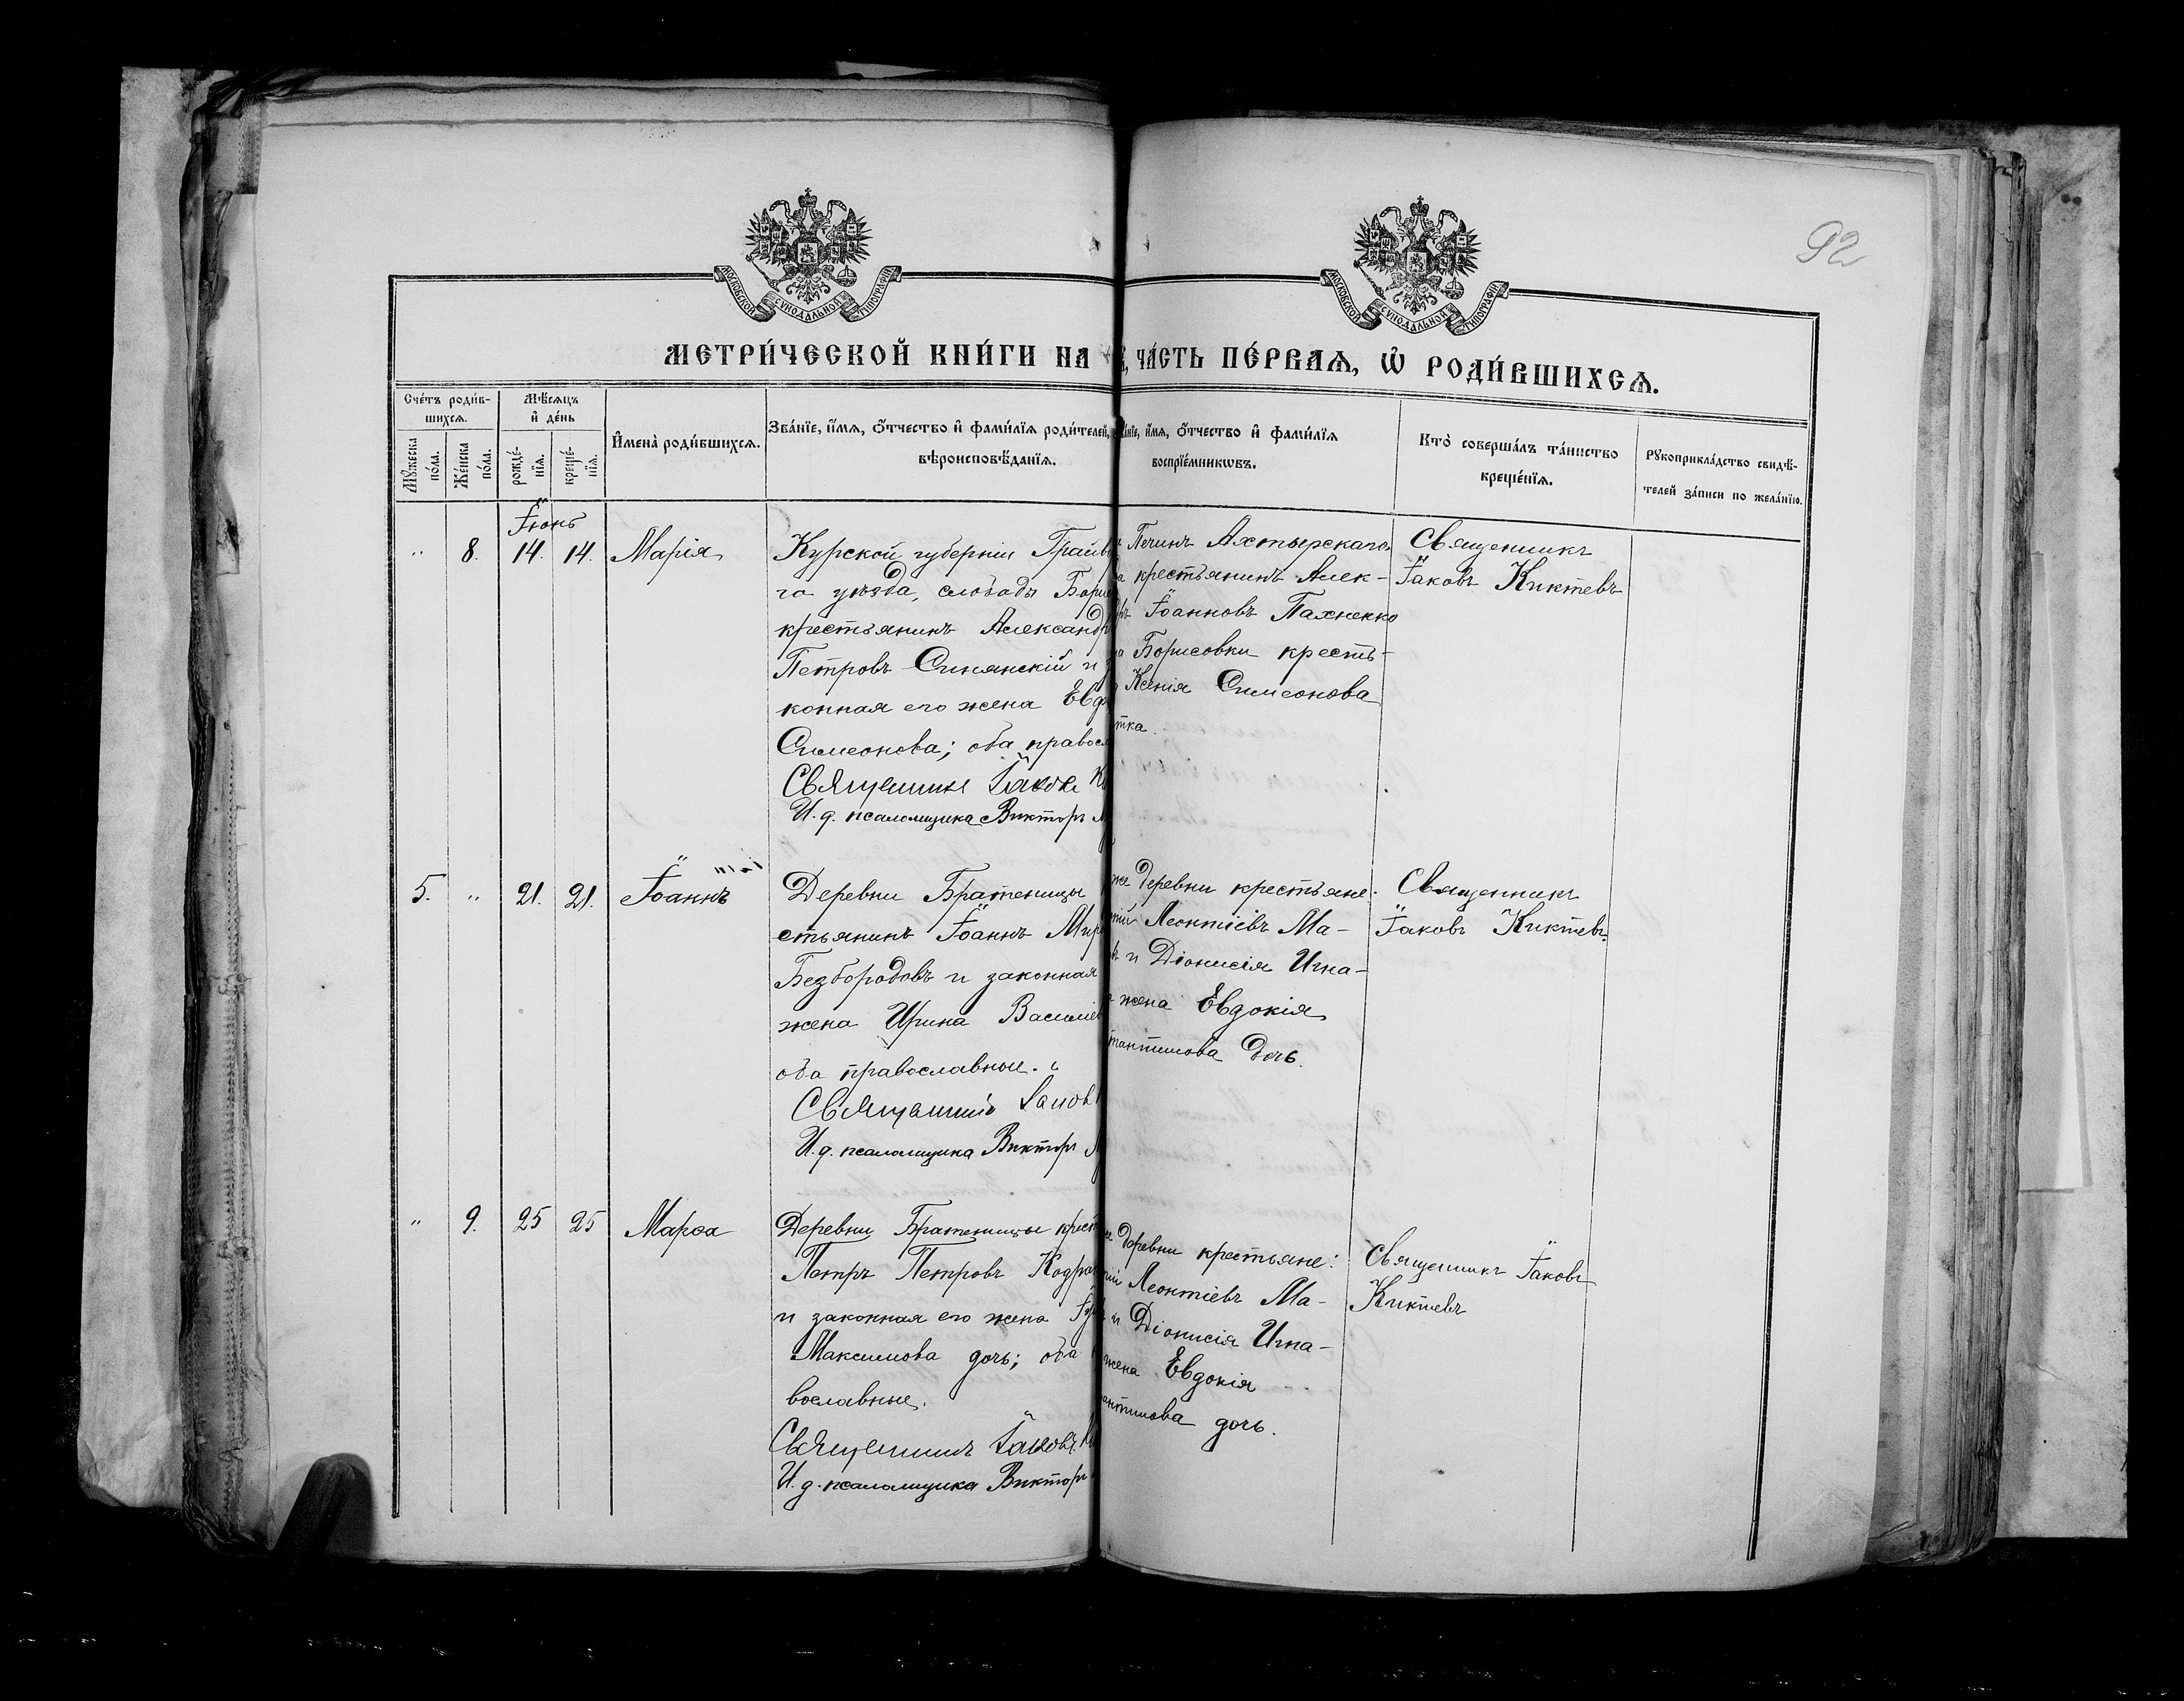 92
МОСКОВСКОЙ СѴНОДАЛЬНОЙ ТИПОГРАФІИ
МОСКОВСКОЙ СѴНОДАЛЬНОЙ ТИПОГРАФІИ
МЕТРИ́ЧЕСКОЙ КНИ́ГИ НА
ЧА́СТЬ ПЕ́РВАѦ, Ѽ РОДИ́ВШИХСѦ.
Сче́тъ роди́в-
шихсѧ.
Мꙋ́жеска по́ла.
Же́нска по́ла.
Мѣ́сѧцъ
и҆ де́нь
рожде́-
нїѧ.
креще́-
нїѧ.
И҆мена̀ роди́вшихсѧ.
Зва́нїе, и҆́мѧ, ѻ҆́тчество и҆ фами́лїѧ роди́телей,
вѣроисповѣ́данїѧ.
и҆́мѧ, ѻ҆́тчество и҆ фами́лїѧ
воспрїе́мникѡвъ.
Кто̀ соверша́лъ та́инство
креще́нїѧ.
Рꙋкоприкла́дство свидѣ́-
телей за́писи по жела́нїю.
Іюнь
" 8. 14. 14. Марія
Курской губерніи Грайв
го уѣзда, слободы Борис
крестьянинъ Александр
Петровъ Синянскій и з
конная его жена Евд
Симеонова; оба правосл
Священникъ Іаковъ К
И. д. псаломщика Викторъ
Печинъ Ахтырскаго
крестьянинъ Алек-
Іоанновъ Пахненко
Борисовки кресть-
Ксенія Симеонова
тка.
Священникъ
Іаковъ Киктевъ
5. " 21. 21. Іоаннъ
Деревни Братеницы
стьянинъ Іоаннъ Мир
Безбородовъ и законная
жена Ирина Василіев
оба православные.
Священникъ Іаков
И. д. псаломщика Викторъ
же деревни крестьяне:
Леонтіевъ Ма-
и Діонисія Игна-
жена Евдокія
тантинова дочь.
Священникъ
Іаковъ Киктевъ
" 9. 25 25 Марѳа
Деревни Братеницы крест
Петръ Петровъ Кодра
и законная его жена
Максимова дочь; оба
вославные.
Священникъ Іаковъ
И. д. псаломщика Викторъ
деревни крестьяне:
Леонтіевъ Ма-
и Діонисія Игна-
жена Евдокія
антинова дочь.
Священникъ Іаковъ
Киктевъ